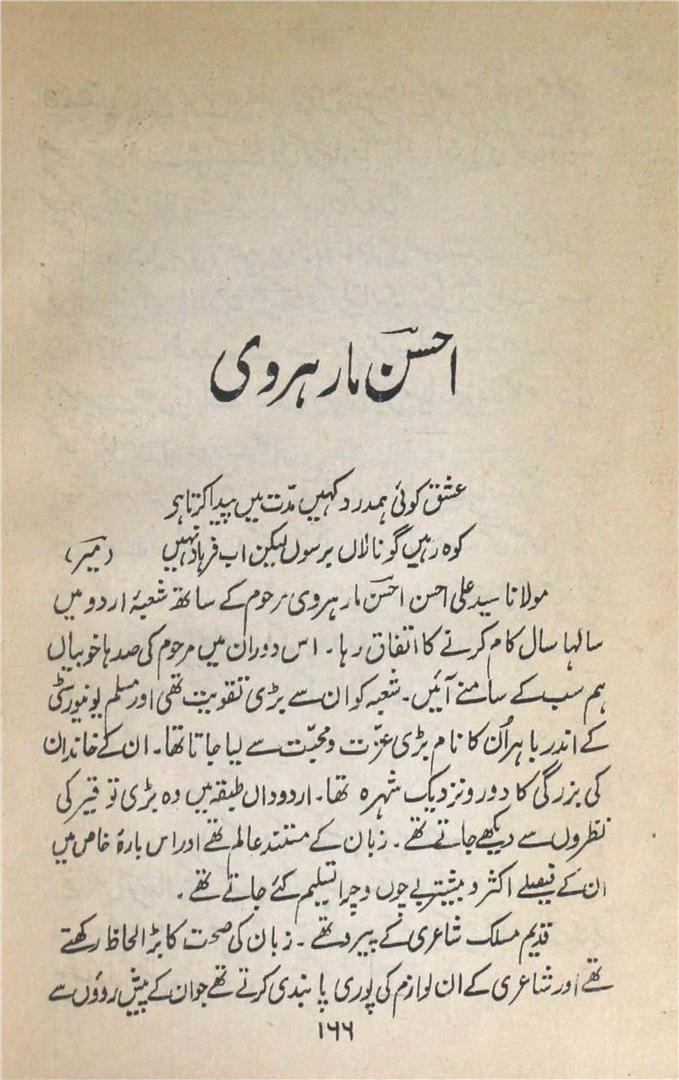 احسن مارہروی
عشق کوئی ہمدرد کہیں مدّت میں پیدا کرتا ہو
کوہ رہیں گو نالاں برسوں لیکن اب فرہاد نہیں (میر)
مولانا سید علی احسن احسن مارہروی مرحوم کے ساتھ شعبۂ اردو میں
سالہا سال کام کرنے کا اتفاق رہا۔ اس دوران میں مرحوم کی صدہا خوبیاں
ہم سب کے سامنے آئیں۔ شعبہ کو ان سے بڑی تقویت تھی اور مسلم یونیورسٹی
کے اندر باہر اُن کا نام بڑی عزّت و محبّت سے لیا جاتا تھا۔ ان کے خاندان
کی بزرگی کا دور و نزدیک شہرہ تھا۔ اردو داں طبقہ میں وہ بڑی توقیر کی
نظروں سے دیکھے جاتے تھے۔ زبان کے مستند عالم تھے اور اس بارۂ خاص میں
ان کے فیصلے اکثر و بیشتر بے چوں و چرا تسلیم کئے جاتے تھے۔
قدیم مسلک شاعری کے پیرو تھے۔ زبان کی صحت کا بڑا لحاظ رکھتے
تھے اور شاعری کے ان لوازم کی پوری پابندی کرتے تھے جو ان کے پیش روؤں سے
۱۶۶